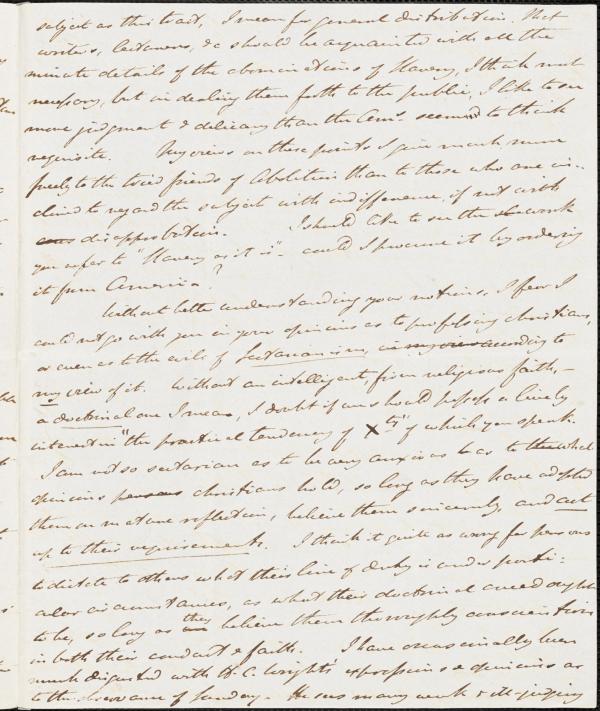 subject as this tract, I mean for general distribution. That
writers, lecturers, &c should be acquainted with all the
minute details of the abominations of Slavery, I think most
necessary, but in dealing them forth to the public, I like to see
more judgment & delicacy than the Ams. seem to think
requisite. My views on these points I give much more
freely to the tried friends of Abolition than to those who are in-
clined to regard the subject with indifference, if not with
disapprobation. I should like to see the work
you refer to "Slavery as it is" - could I procure it by ordering
it from America?
Without better understanding your notions, I fear I
could not go with you in your opinions as to professing christians,
or even as to the evils of Sectarianism, in my view according to
my view of it. Without an intelligent, firm religious faith, -
a doctrinal one I mean, I doubt if we should possess a lively
interest in "the practical tendency of Xty" of which you speak.
I am not so sectarian as to be very anxious as to what
opinions persons christians hold, so long as they have adopted
them on mature reflection, believe them sincerely and act
up to their requirements. I think it quite as wrong for persons
to dictate to others what their line of duty is under parti-
cular circumstances, as what their doctrinal creed ought
to be, so long as they believe them thoroughly conscientious
in both their conduct & faith. I have occasionally been
much disgusted with H. C. Wright's expressions & opinions as
to the observance of Sunday. He uses many weak & ill-judging